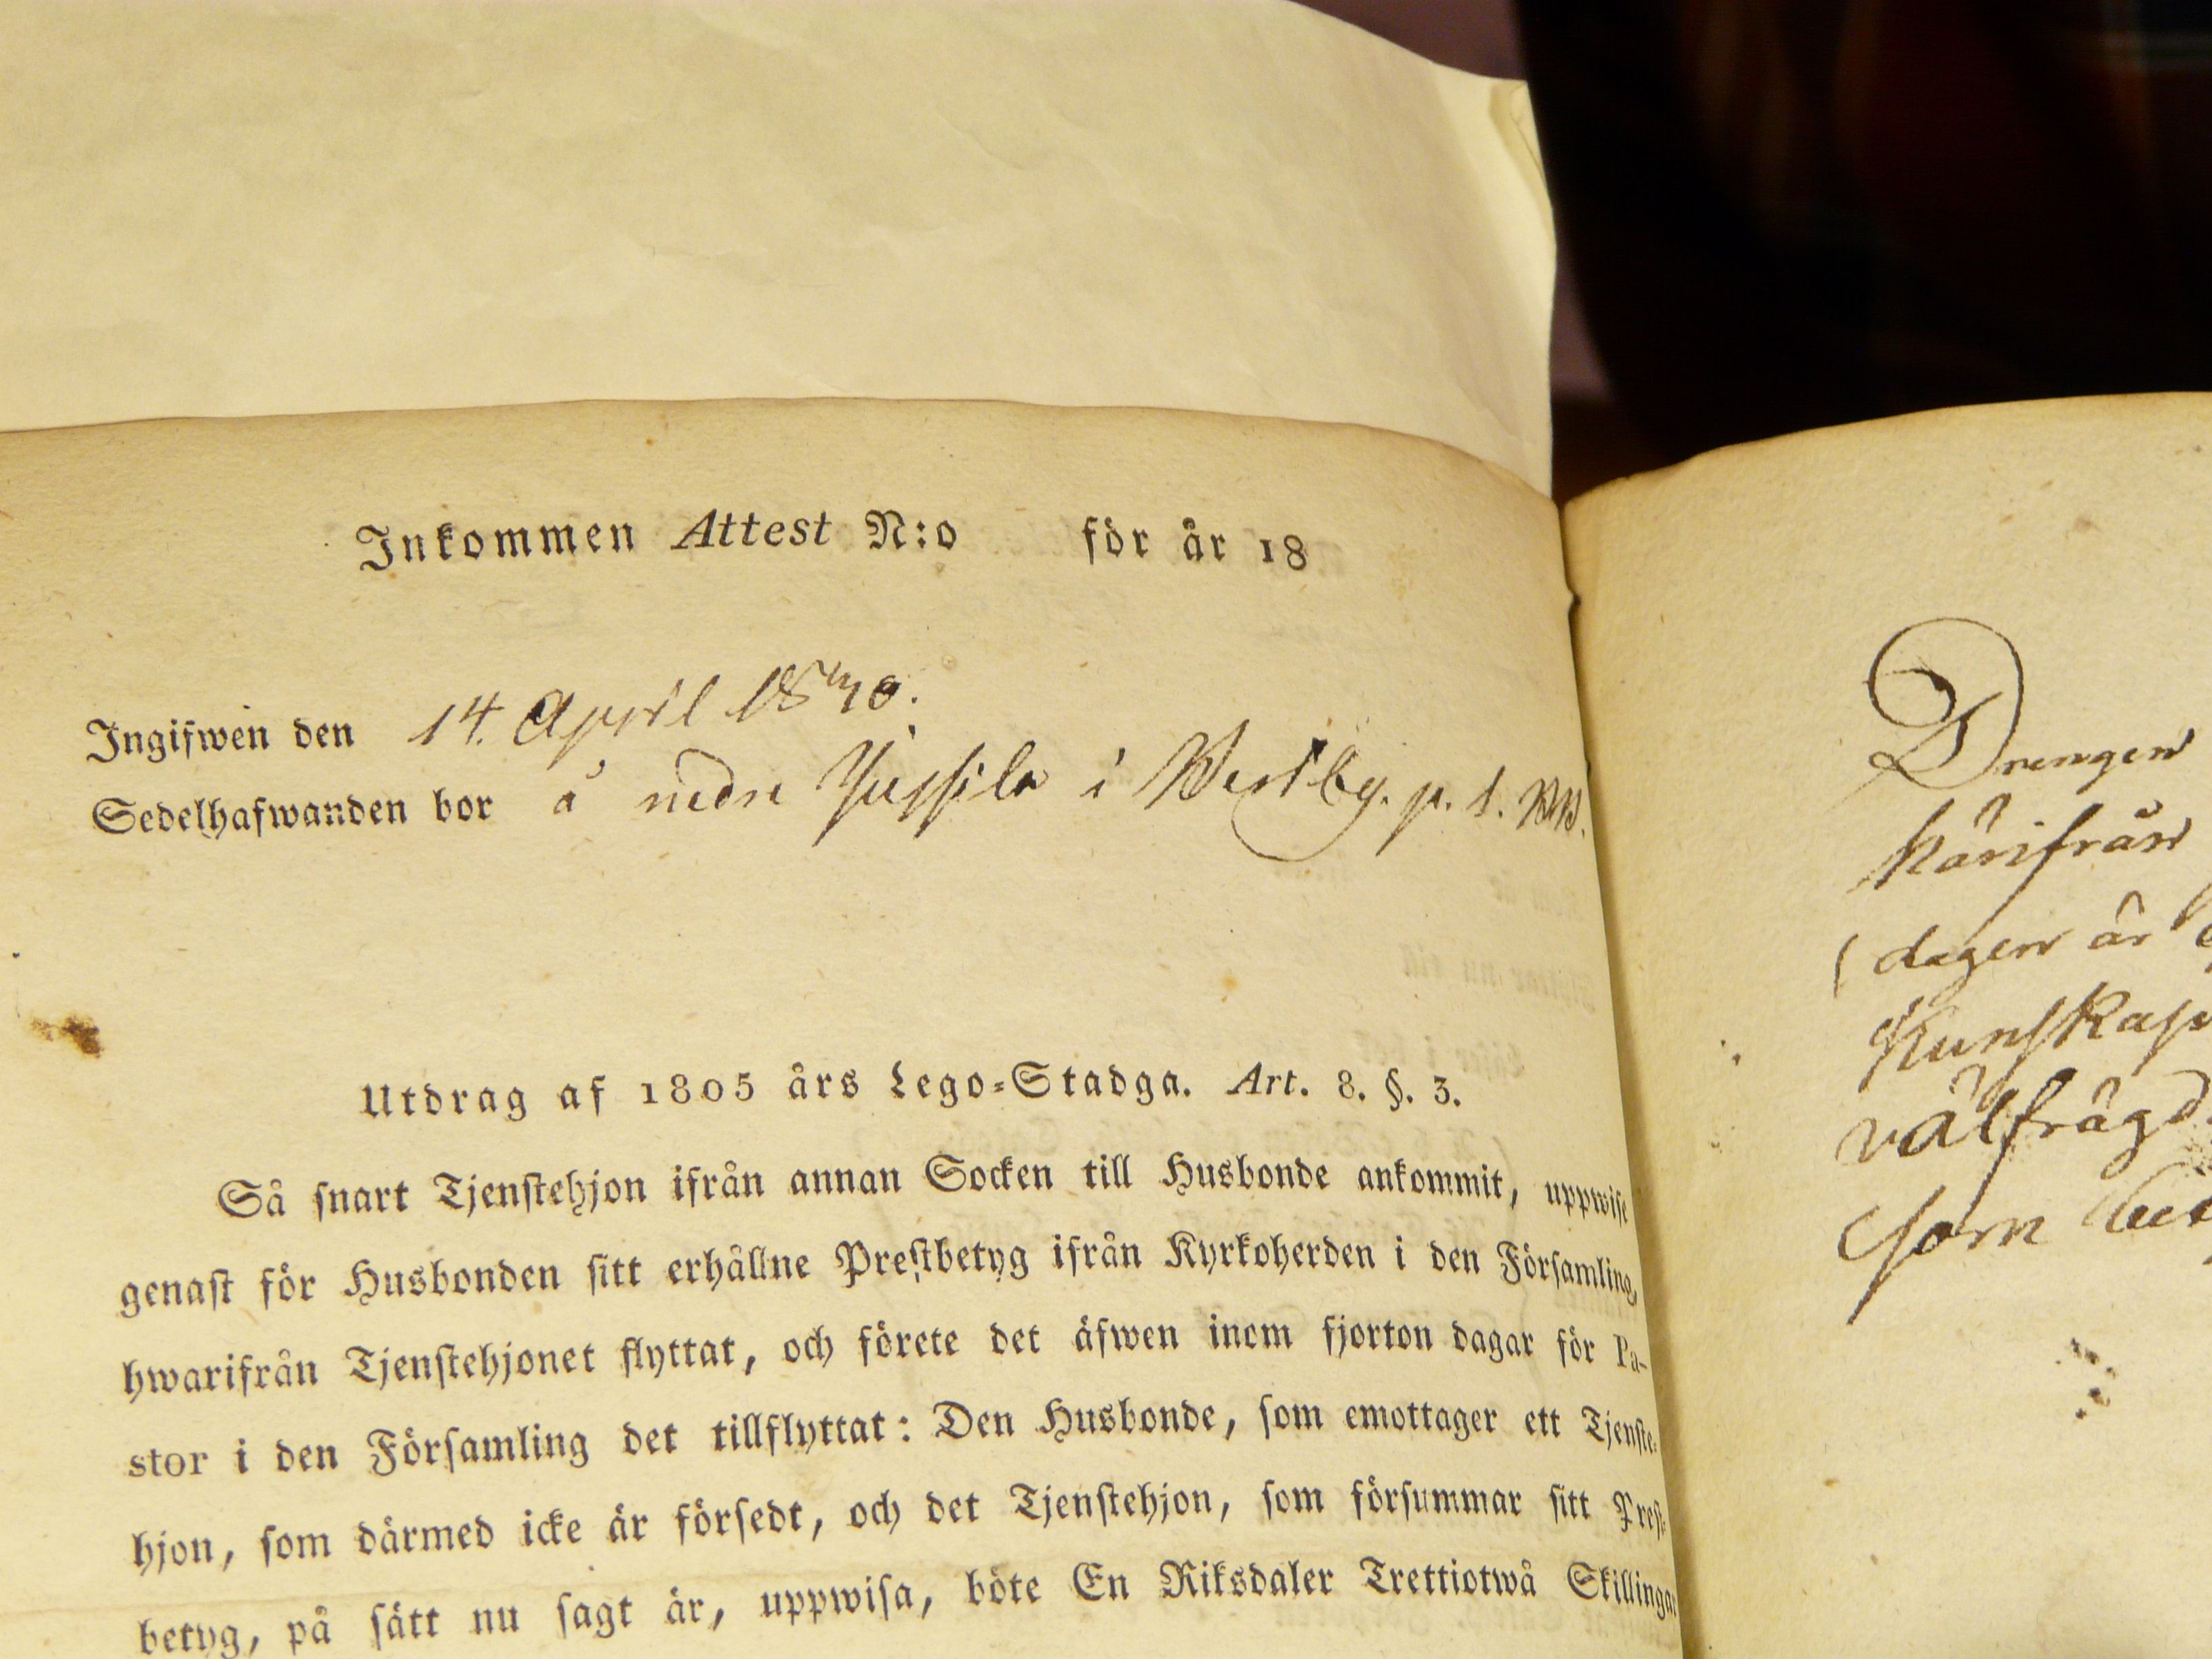 Inkommen Attest N:o för år 18
Ingifwen den 14. April 1840.
Sedelhafwanden bor å nedre Jussila i Westby. p. 1.
Utdrag af 1805 års Lego-Stadga. Art. 8. §. 3.
Så snart Tjenstehjon ifrån annan Socken till Husbonde ankommit, uppwise
genast för Husbonden sitt erhållne Prestbetyg ifrån Kyrkoherden i den Församling,
hwarifrån Tjenstehjonet flyttat, och förete det äfwen inom fjorton dagar för Pa-
stor i den Församling det tillflyttat: Den Husbonde, som emottager ett Tjenste-
hjon, som därmed icke är försedt, och det Tjenstehjon, som försummar sitt Prest-
betyg, på sätt nu sagt är, uppwisa, böte En Riksdaler Trettiotwå Skillingar
Drengen
härifrån
dagen är
Kunskap
välfrägd
som